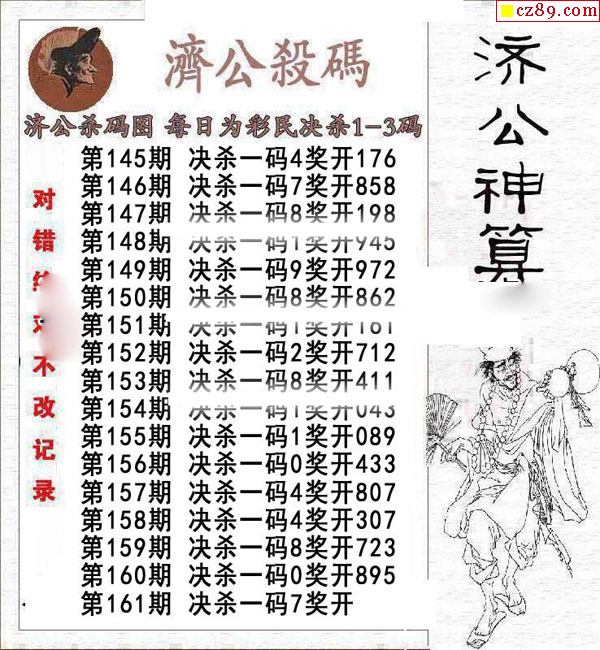 cz89.com
濟公殺碼
济公神算
济公杀码图 每日为彩民决杀1-3码
第145期 决杀一码4奖开176
第146期 决杀一码7奖开858
第147期 决杀一码8奖开198
第148期 决杀一码1奖开945
第149期 决杀一码9奖开972
第150期 决杀一码8奖开862
第151期 决杀一码1奖开161
第152期 决杀一码2奖开712
第153期 决杀一码8奖开411
第154期 决杀一码1奖开043
第155期 决杀一码1奖开089
第156期 决杀一码0奖开433
第157期 决杀一码4奖开807
第158期 决杀一码4奖开307
第159期 决杀一码8奖开723
第160期 决杀一码0奖开895
第161期 决杀一码7奖开
对错不改记录